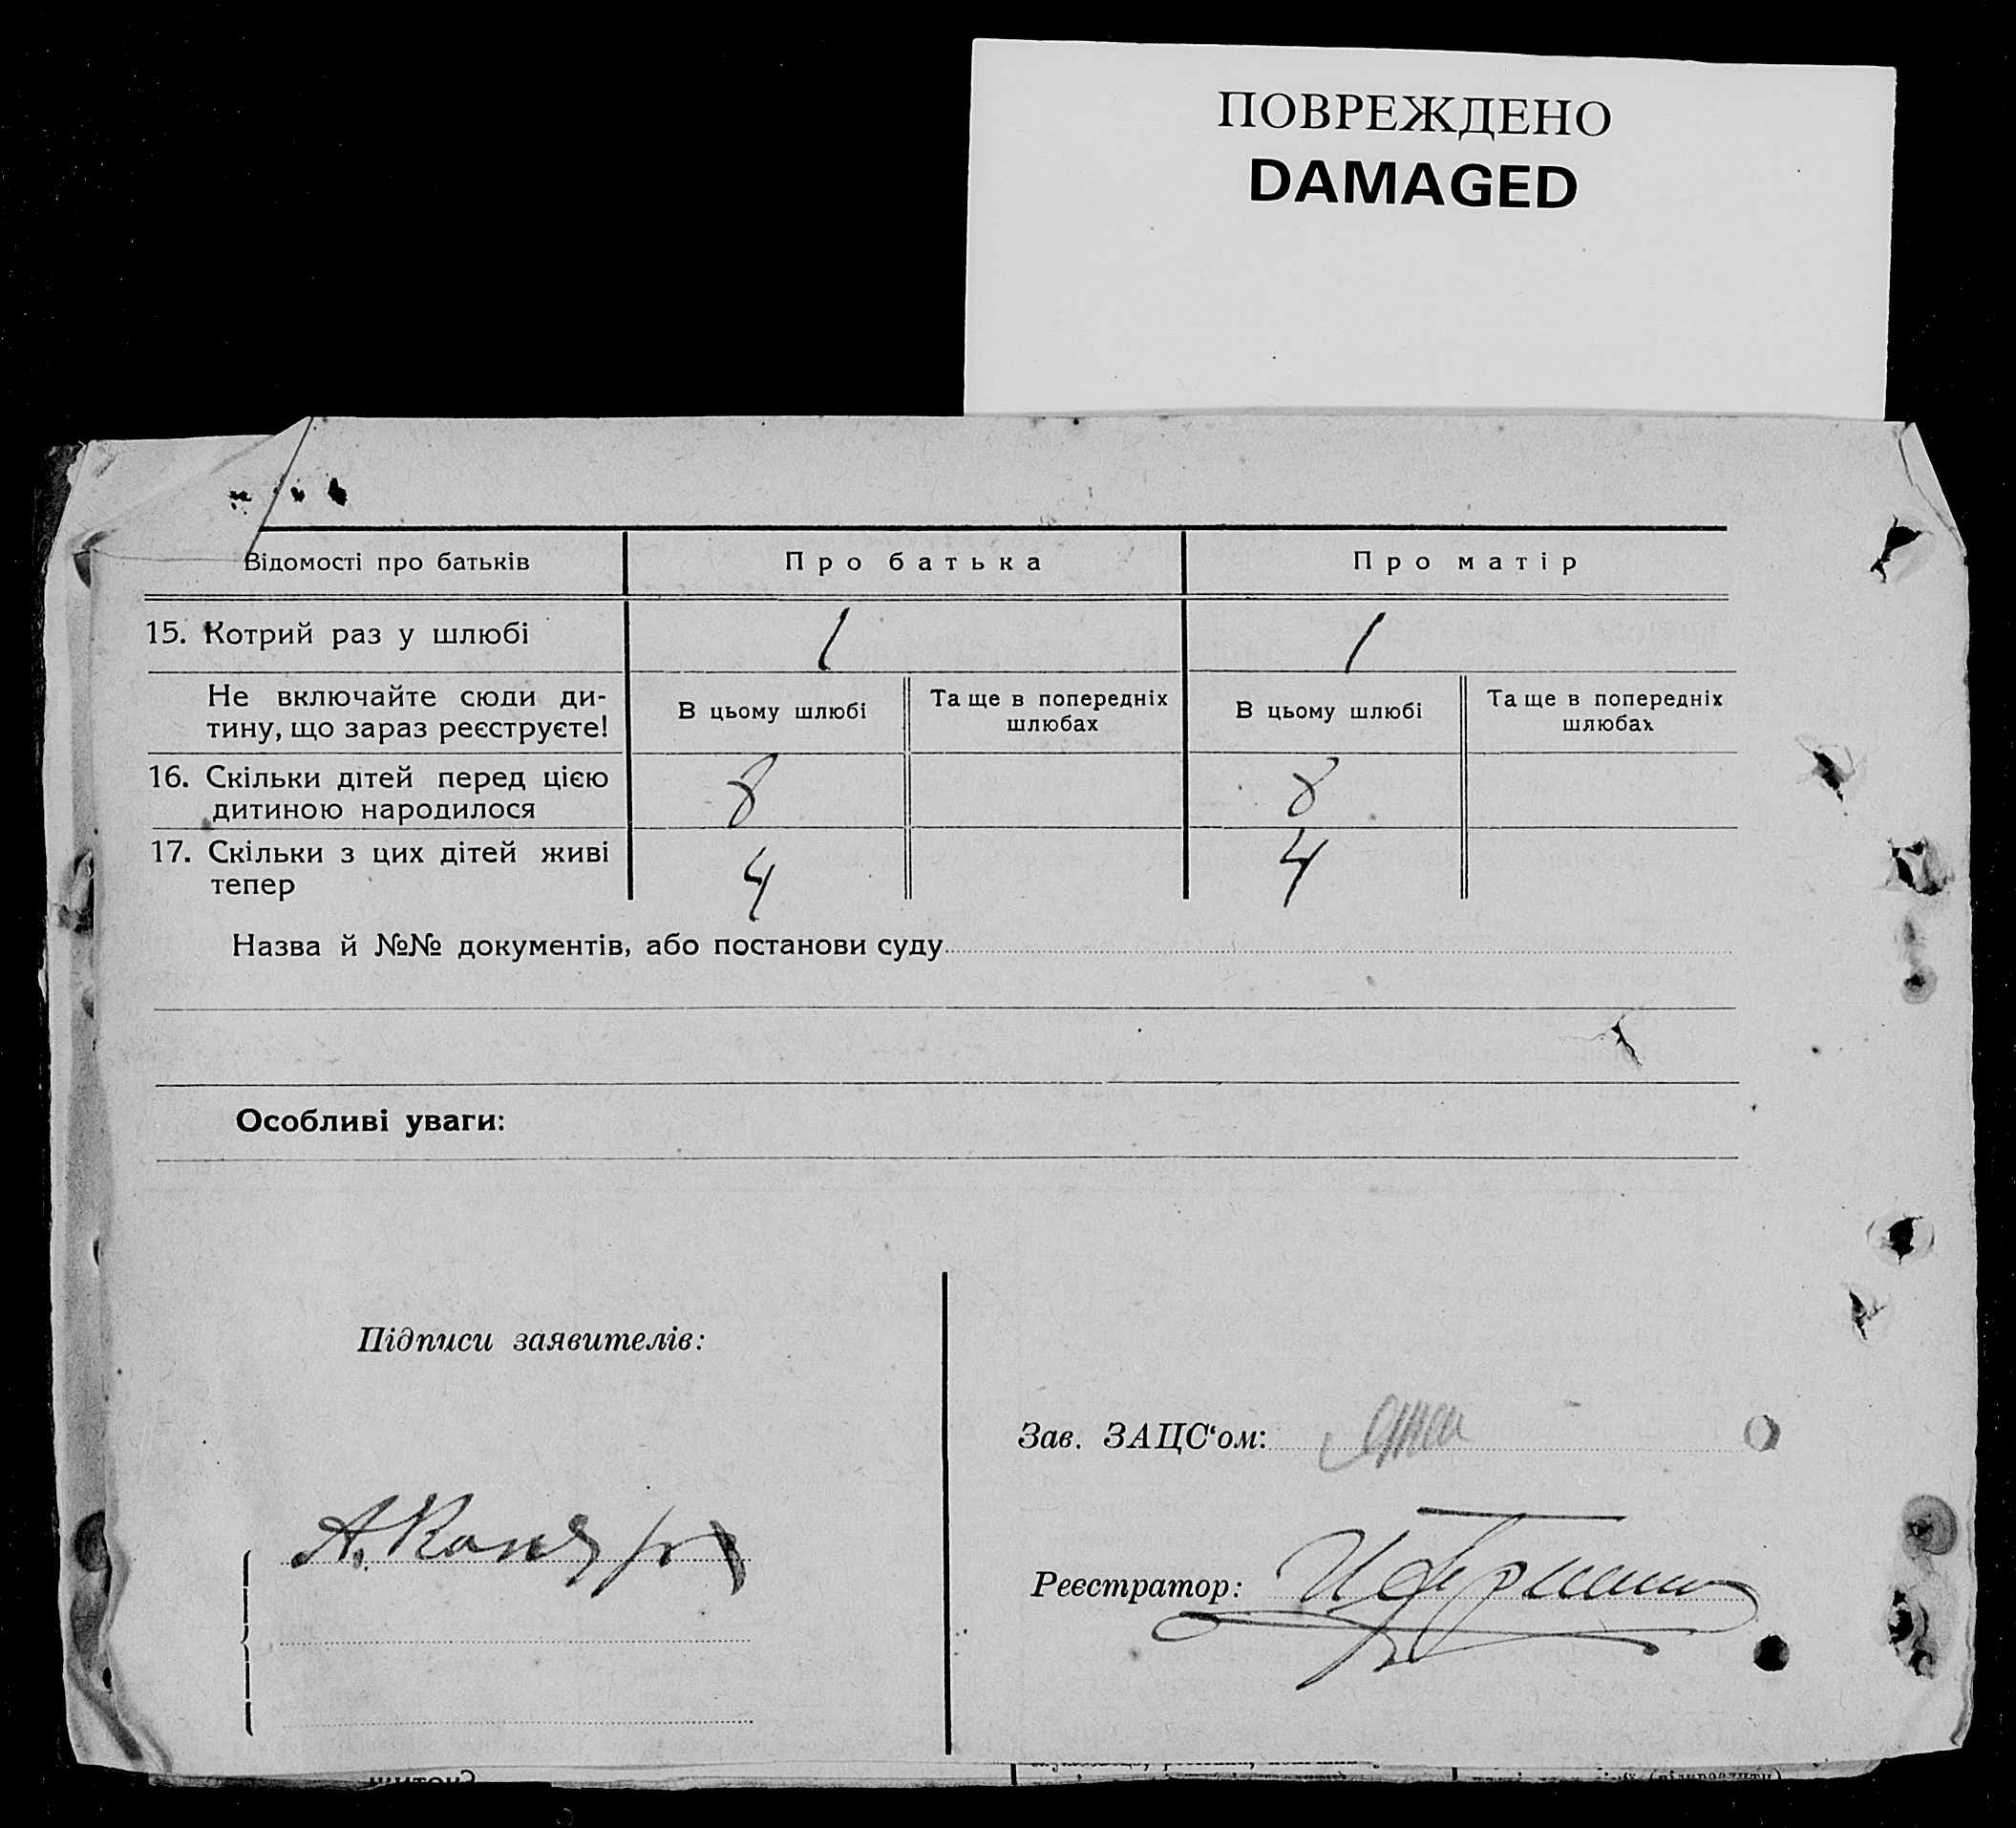 ПОВРЕЖДЕНО
DAMAGED
Відомості про батьків Про батька Про матір
15. Котрий раз у шлюбі 1 1
Не включайте сюди ди-
тину, що зараз реєструєте!
В цьому шлюбі Та ще в попередніх
шлюбах
В цьому шлюбі Та ще в попередніх
шлюбах
16. Скільки дітей перед цією
дитиною народилося 8 8
17. Скільки з цих дітей живі
тепер 4 4
Назва й №№ документів, або постанови суду
Особливі уваги:
Підписи заявителів:
Зав. ЗАЦС‘ом:
А.
Реєстратор: